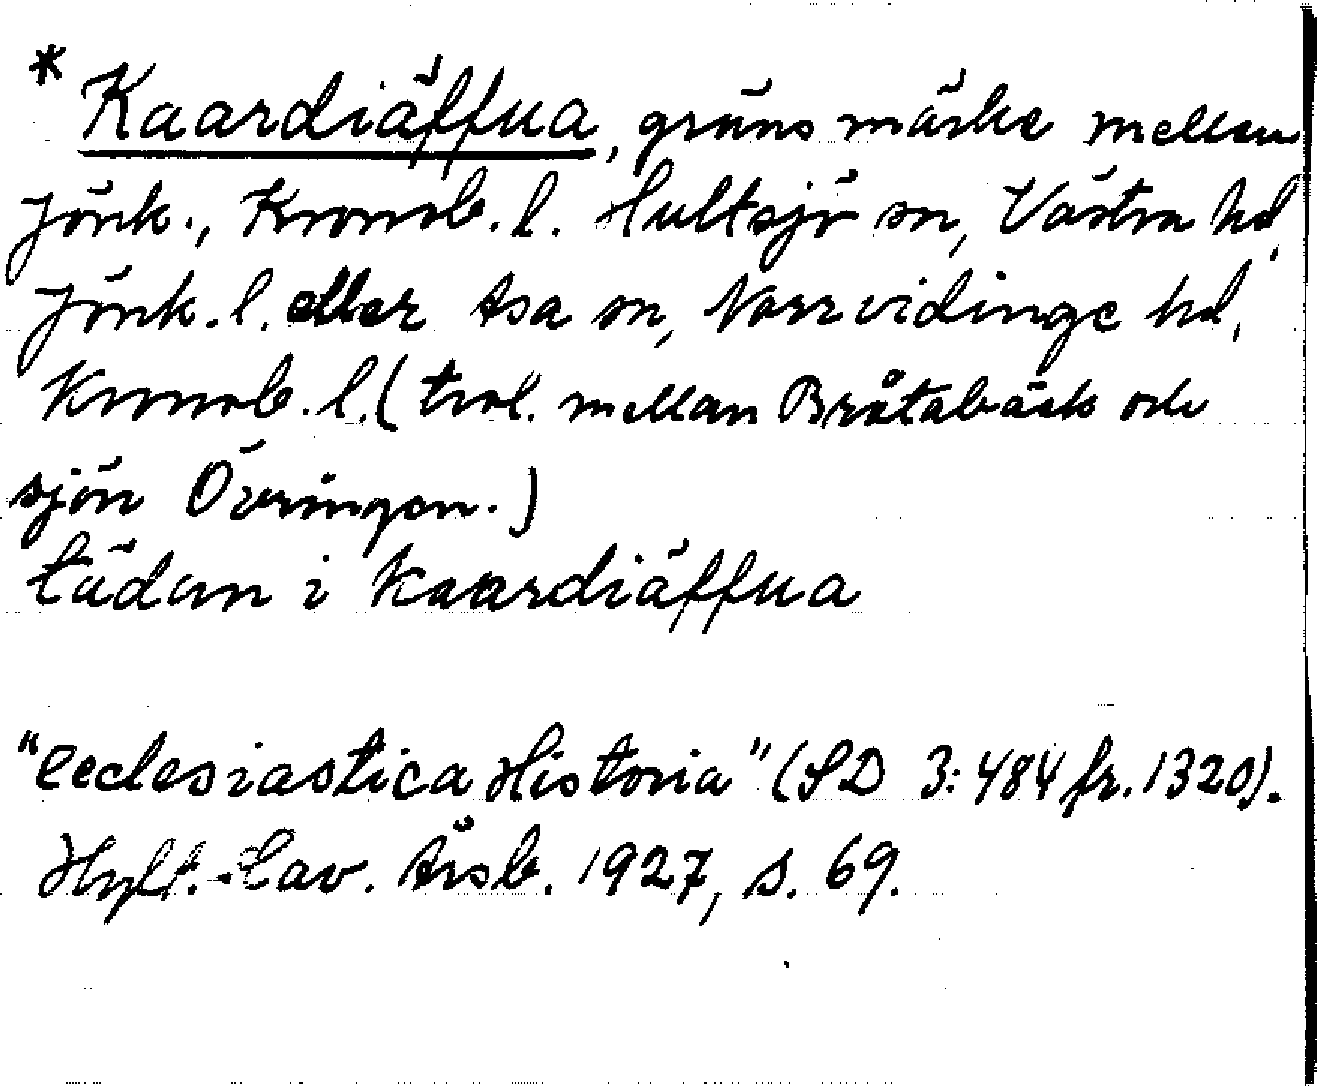 * Kaardiäffua, gränsmärke mellan
Jönk., Kronob. l. Hultsjö sn, Västra hd,
Jönk. l. eller Asa sn, Norrvidinge hd,
Kronob. l. (trol. mellan Bråtabäck och
sjön Övringen.)
tädan i kaardiäffua
"ecclesiastica Historia" (SD 3:484 fr. 1320).
Hylt.-Cav. Årsb. 1927, s. 69.